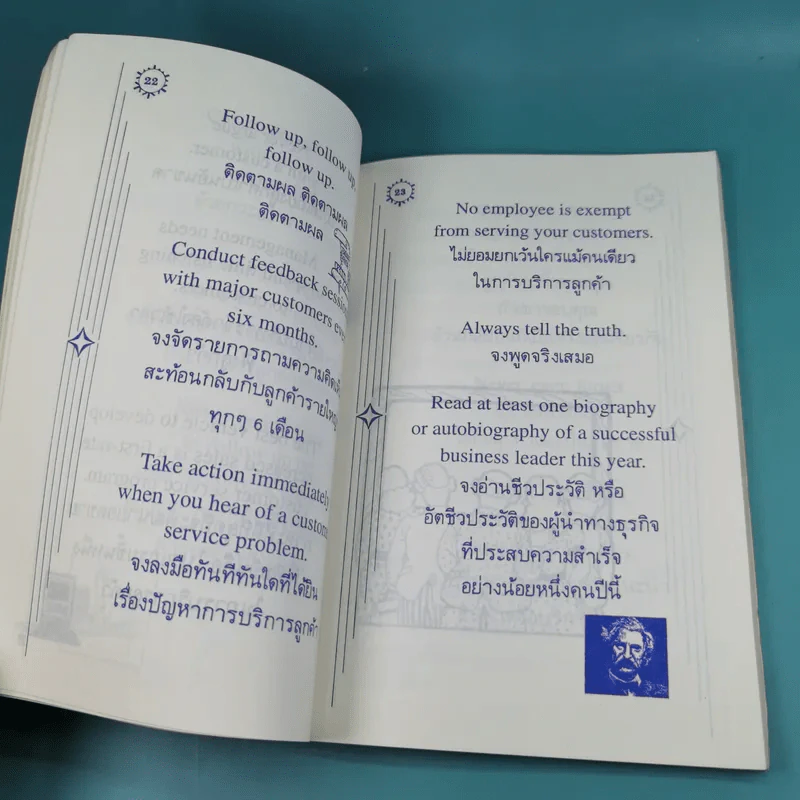 22
Follow up, follow up,
follow up.
ติดตามผล ติดตามผล
ติดตามผล
Conduct feedback
with major customers
six months.
จงจัดรายการถามความคิด
สะท้อนกลับกับลูกค้าราย
ทุกๆ 6 เดือน
Take action immediately
when you hear of a
service problem.
จงลงมือทันทีทันใดที่ได้ยิน
เรื่องปัญหาการบริการลูกค้า
23
No employee is exempt
from serving your customers.
ไม่ยอมยกเว้นใครแม้คนเดียว
ในการบริการลูกค้า
Always tell the truth.
จงพูดจริงเสมอ
Read at least one biography
or autobiography of a successful
business leader this year.
จงอ่านชีวประวัติ หรือ
อัตชีวประวัติของผู้นำทางธุรกิจ
ที่ประสบความสำเร็จ
อย่างน้อยหนึ่งคนปีนี้